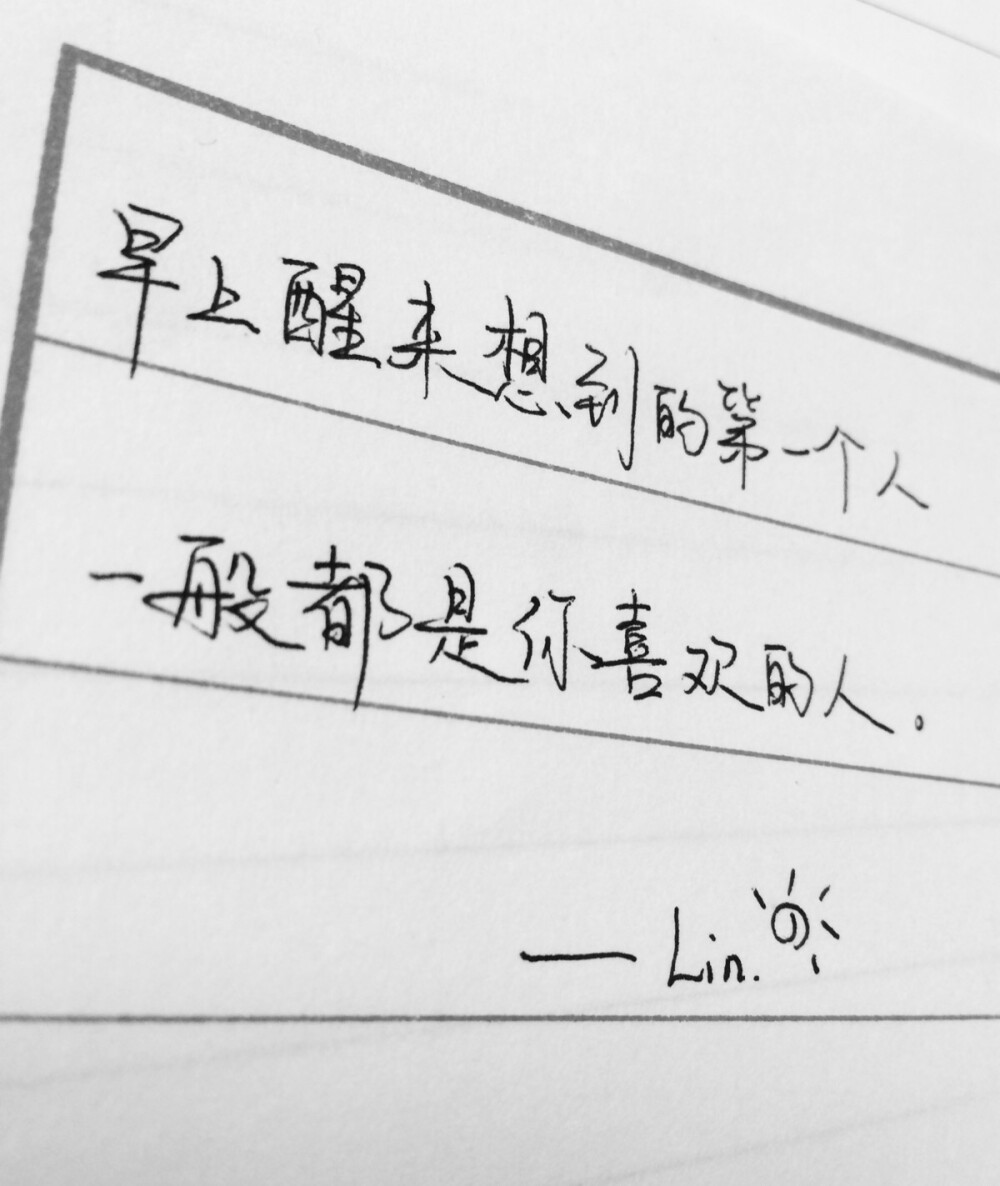 早上醒来想到的第一个人
一般都是你喜欢的人。
—— Lin.